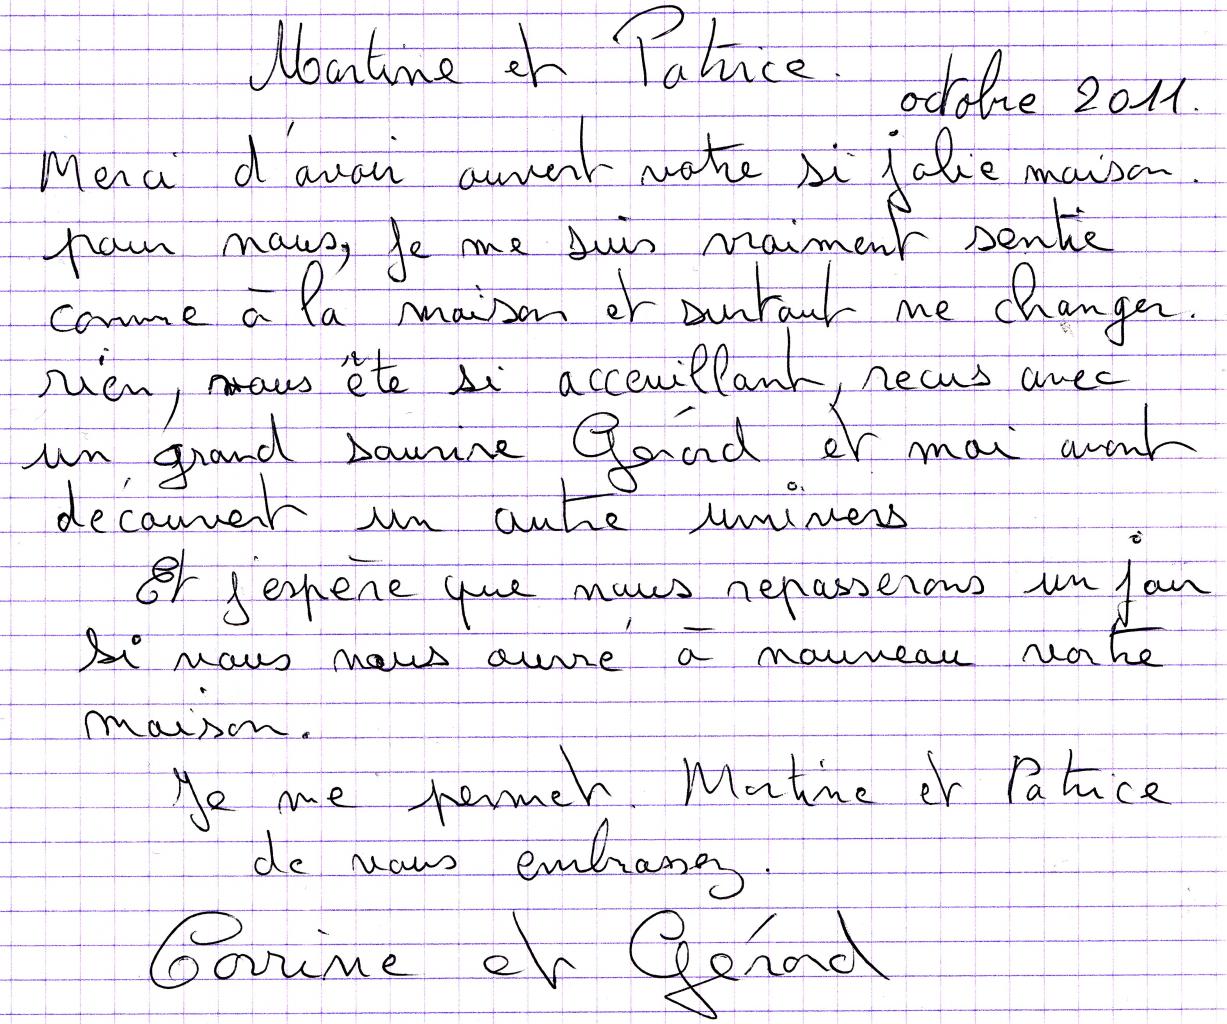 Martine et Patrice.
octobre 2011.
Merci d'avoir ouvert votre si jolie maison.
pour nous, je me suis vraiment sentie
comme à la maison et surtout ne changer.
rien, vous ête si acceuillant, recus avec
un grand sourire Gérard et moi avont
découvert un autre univers
Et j'espère que nous repasserons un jour
si vous nous ouvré à nouveau votre
maison.
Je me permet. Martine et Patrice
de vous embrassez.
Corrine et Gérard